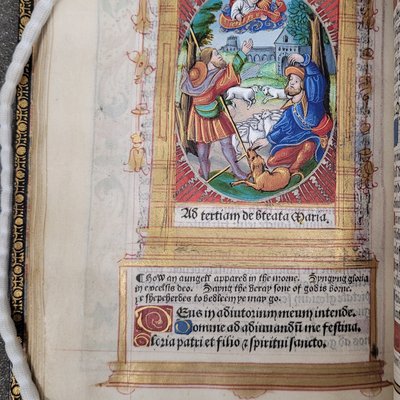 Ad tertiam de bteata Maria.
¶ How an aungell appared in the morne. Syngyng gloria
in excelsis deo. Sayng the veray sone of god is borne.
ye shepeherdes to bedleem ye may go.
DEus in adiutorium meum intende.
Domine ad adiuuandū me festina.
Gloria patri et filio & spiritui sancto.